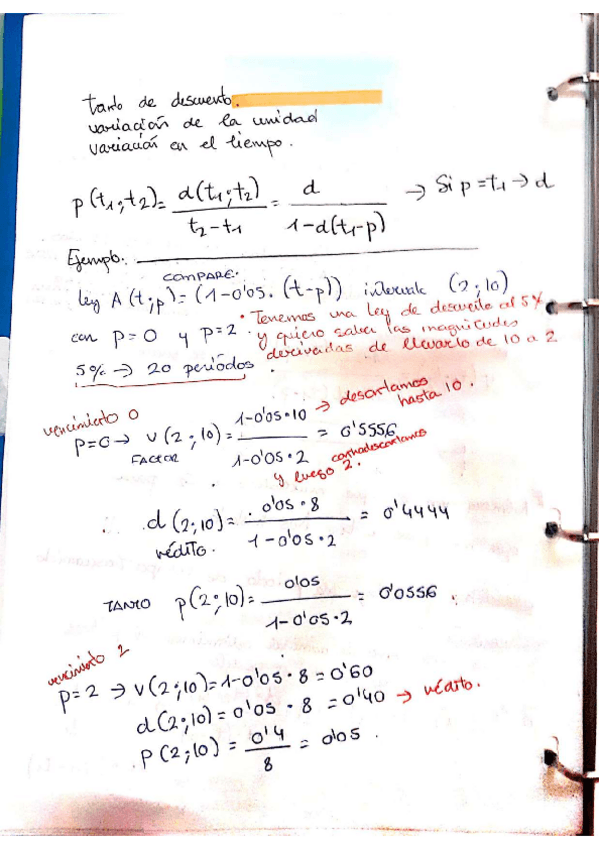 tanto de descuento.
variación de la unidad
variación en el tiempo.
p(t1;t2) = d(t1;t2) / t2-t1 = d / 1-d(t1-p) → Si p=t1 → d
Ejemplo.
COMPARE.
ley A(t;p) = (1-0'05.(t-p)) intervalo (2;10)
con p=0 y p=2.
5% → 20 periódos.
• Tenemos una Ley de descuento al 5%
y quiero saber las magnitudes
derivadas de llevarlo de 10 a 2
vencimiento 0
p=0 → v(2;10) = 1-0'05•10 / 1-0'05•2 = 0'5556
FACTOR
→ descontamos
hasta 10.
y luego 2.
d(2;10) = 0'05•8 / 1-0'05•2 = 0'4444
rédito.
TANTO p(2;10) = 0'05 / 1-0'05•2 = 0'0556
vencimiento 2
p=2 → v(2;10) = 1-0'05•8 = 0'60
d(2;10) = 0'05•8 = 0'40 → rédito.
p(2;10) = 0'4 / 8 = 0'05.